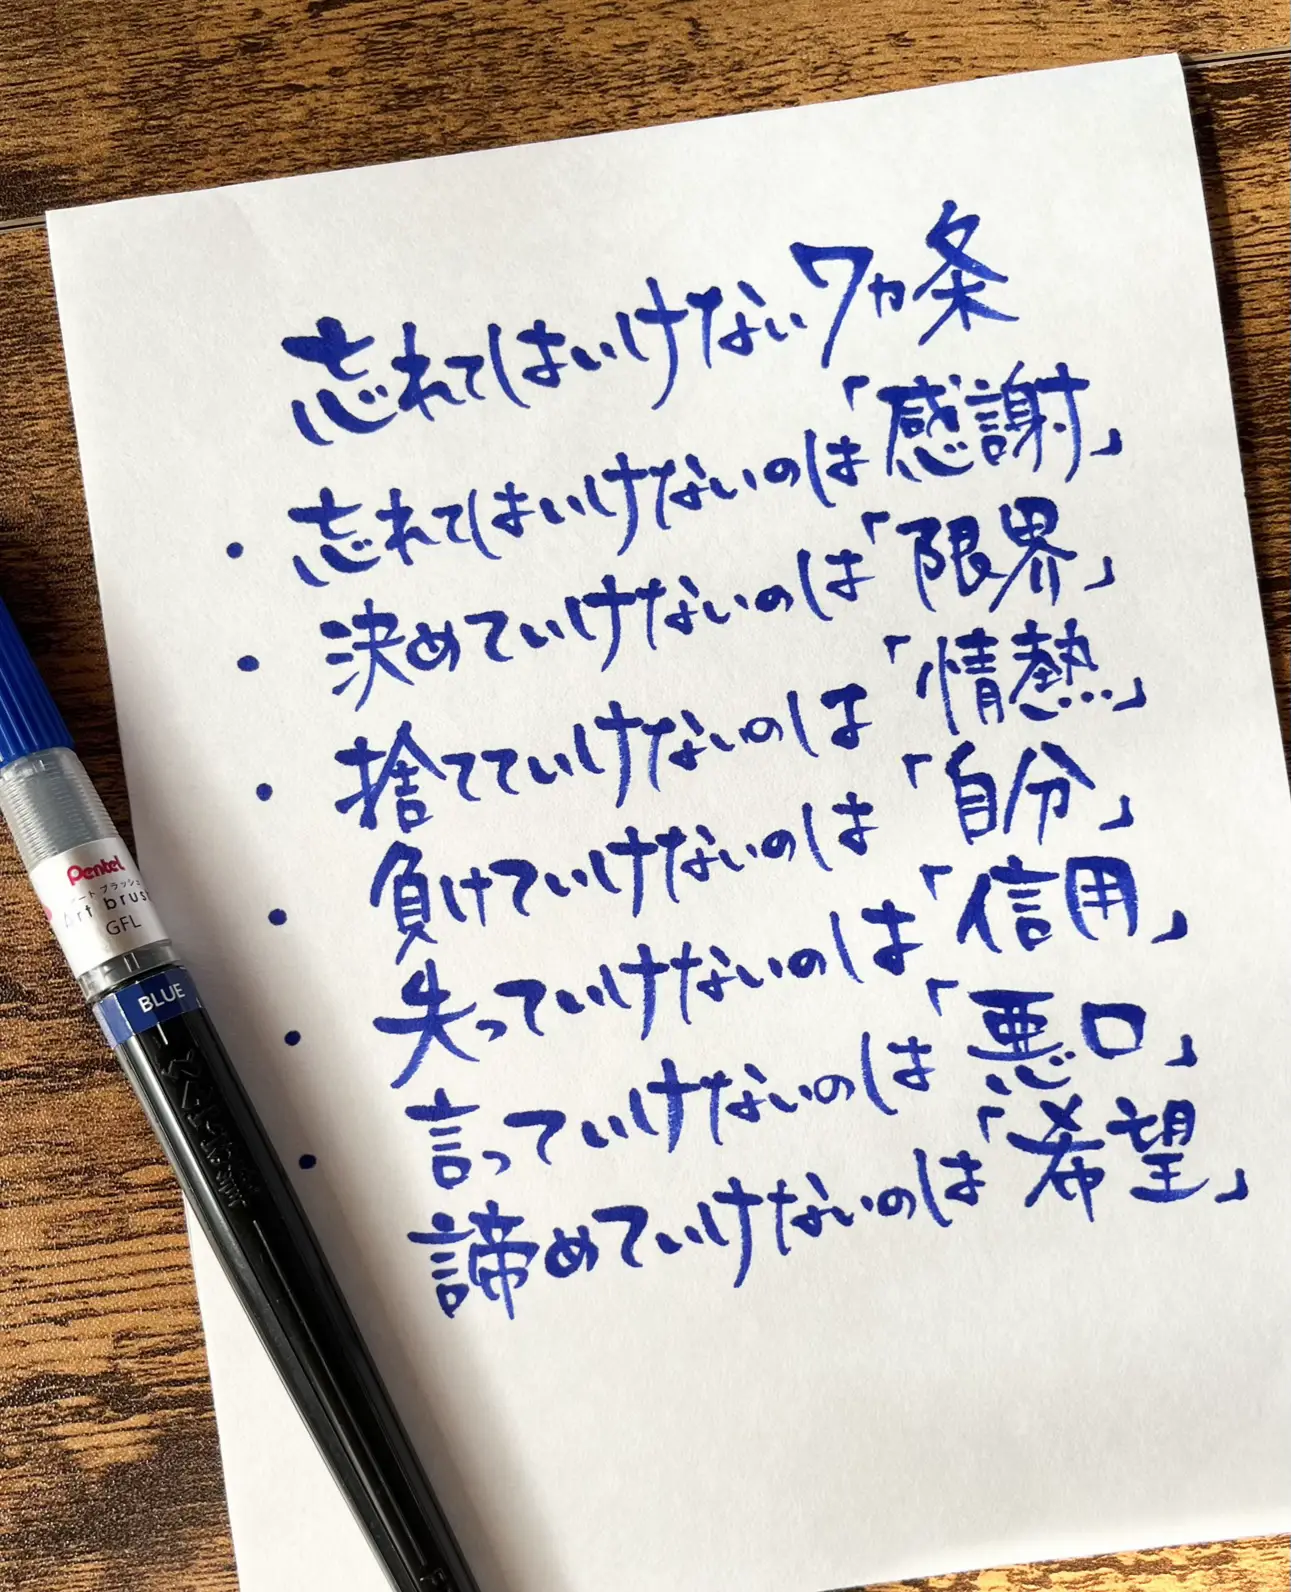 忘れてはいけない7ヵ条
・忘れてはいけないのは「感謝」
・決めていけないのは「限界」
・捨てていけないのは「情熱」
・負けていけないのは「自分」
・失っていけないのは「信用」
・言っていけないのは「悪口」
諦めていけないのは「希望」
Pentel
アートブラッシュ
Art brush
GFL
BLUE